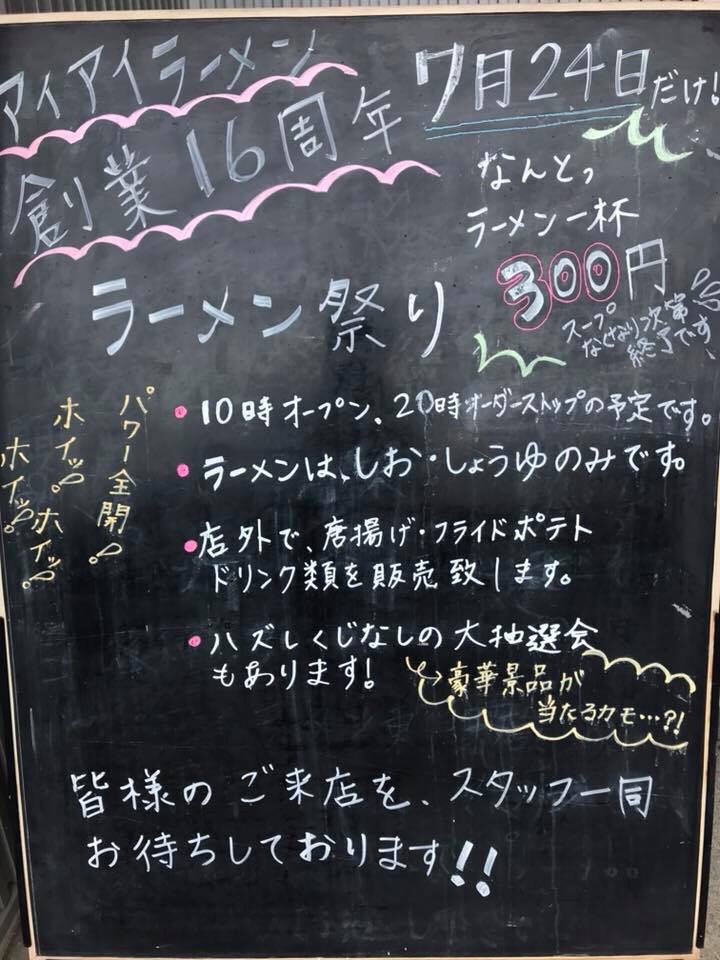 アイアイラーメン
創業16周年
7月24日だけ!
なんとっ
ラーメン一杯
300円
スープ
なくなり次第
終了です
ラーメン祭り
パワー全開!
ホイッ。ホイッ!
ホイッ。
・10時オープン、20時オーダーストップの予定です。
・ラーメンは、しお・しょうゆのみです。
・店外で、唐揚げ・フライドポテト
ドリンク類を販売致します。
・ハズレくじなしの大抽選会
もあります!
→豪華景品が
当たるカモ…?!
皆様のご来店を、スタッフ一同
お待ちしております!!